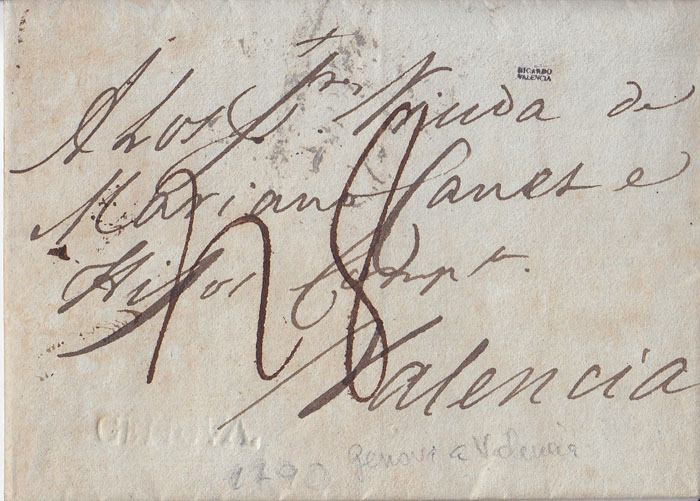 RICARDO
VALENCIA
A Los S.res Viuda de
Mariano Canet e
Hijos Comp.a
Valencia
GENOVA.
1790 genova a Valencia